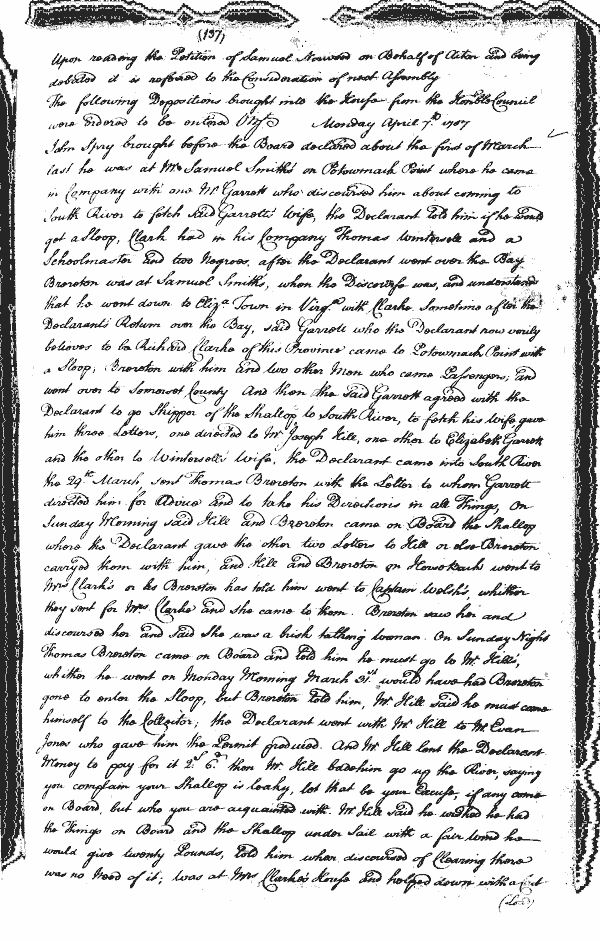 (137)
Upon reading the Petition of Samuel Norwood on Behalf of Acton and being
debated it is referred to the Consideration of next Assembly
The following Depositions brought into the House from the Honble Council
were Ordered to be entered Vizt Monday April 7th 1707
John Spry brought before the Board declared about the first of March
last he was at Mr Samuel Smith's on Potowmack Point where he came
in Company with one Mr Garrett who discoursed him about coming to
South River to fetch said Garrett's Wife, the Declarant told him if he would
get a Sloop, Clark had in his Company Thomas Wintersell and a
Schoolmaster and two Negroes, after the Declarant went over the Bay
Brereton was at Samuel Smiths, when the Discourse was, and understood
that he went down to Eliza Town in Virga with Clarke. Sometime after the
Declarant's Return over the Bay, said Garrett who the Declarant now verily
believes to be Richard Clarke of this Province came to Potowmack Point with
a Sloop, Brereton with him and two other Men who came Passengers, and
went over to Somerset County And then the said Garrett agreed with the
Declarant to go Skipper of the Shallop to South River, to fetch his Wife, gave
him three Letters, one directed to Mr Joseph Hill, one other to Elizabeth Garrett
and the other to Wintersell's Wife, the Declarant came into South River
the 29th March, sent Thomas Brereton with the Letter to whom Garrett
directed him for Advice and to take his Directions in all Things, On
Sunday Morning said Hill and Brereton came on Board the Shallop
where the Declarant gave the other two Letters to Hill or else Brereton
carryed them with him, and Hill and Brereton on Horseback went to
Mrs Clark's or as Brereton has told him went to Captain Welsh's, whither
they sent for Mrs Clarke and she came to them. Brereton saw her and
discoursed her and said She was a brisk talking woman. On Sunday Night
Thomas Brereton came on Board and told him he must go to Mr Hill's,
whither he went on Monday Morning March 31st would have had Brereton
gone to enter the Sloop, but Brereton told him, Mr Hill said he must come
himself to the Collector; the Declarant went with Mr Hill to Mr Evan
Jones who gave him the Permit produced. And Mr Hill lent the Declarant
Money to pay for it 2s 6d then Mr Hill bade him go up the River, saying
you complain your Shallop is leaky, let that be your Excuse, if any come
on Board, but who you are acquainted with. Mr Hill said he wished he had
the Things on Board and the Shallop under Sail with a fair wind he
would give twenty Pounds, told him when discoursed of Clearing there
was no Need of it; was at Mrs Clarke's House and helped down with a